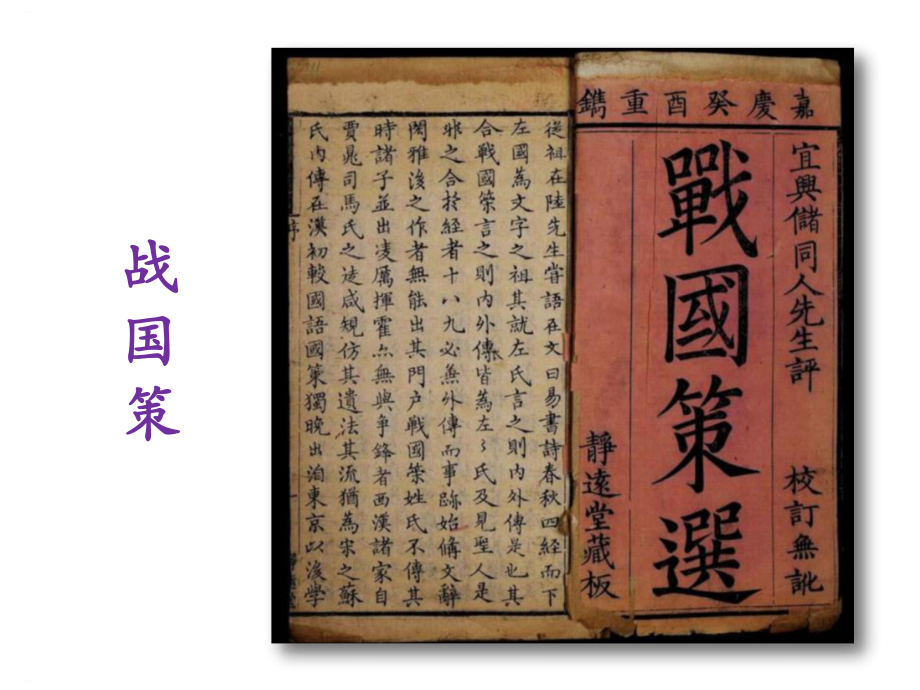 战国策
嘉慶癸酉重鐫
宜興儲同人先生評 校訂無訛
戰國策選
靜遠堂藏板
從祖在陸先生嘗語在文曰易書詩春秋四經而下
左國為文字之祖其就左氏言之則内外傳是也其
合戰國策言之則内外傳皆為左〻氏及見聖人是
非之合於經者十八九必無外傳而事跡始備文辭
閎雅後之作者無能出其門户戰國策姓氏不傳其
時諸子並出凌厲揮霍亦無與爭鋒者西漢諸家自
賈晁司馬氏之徒咸規仿其遺法其流猶為宋之蘇
氏内傳在漢初較國語國策獨晚出洎東京以後學
序